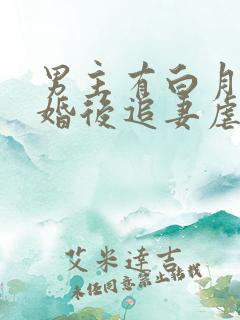 男主有白月
婚後追妻虐
艾米達吉
未经同意禁止转载